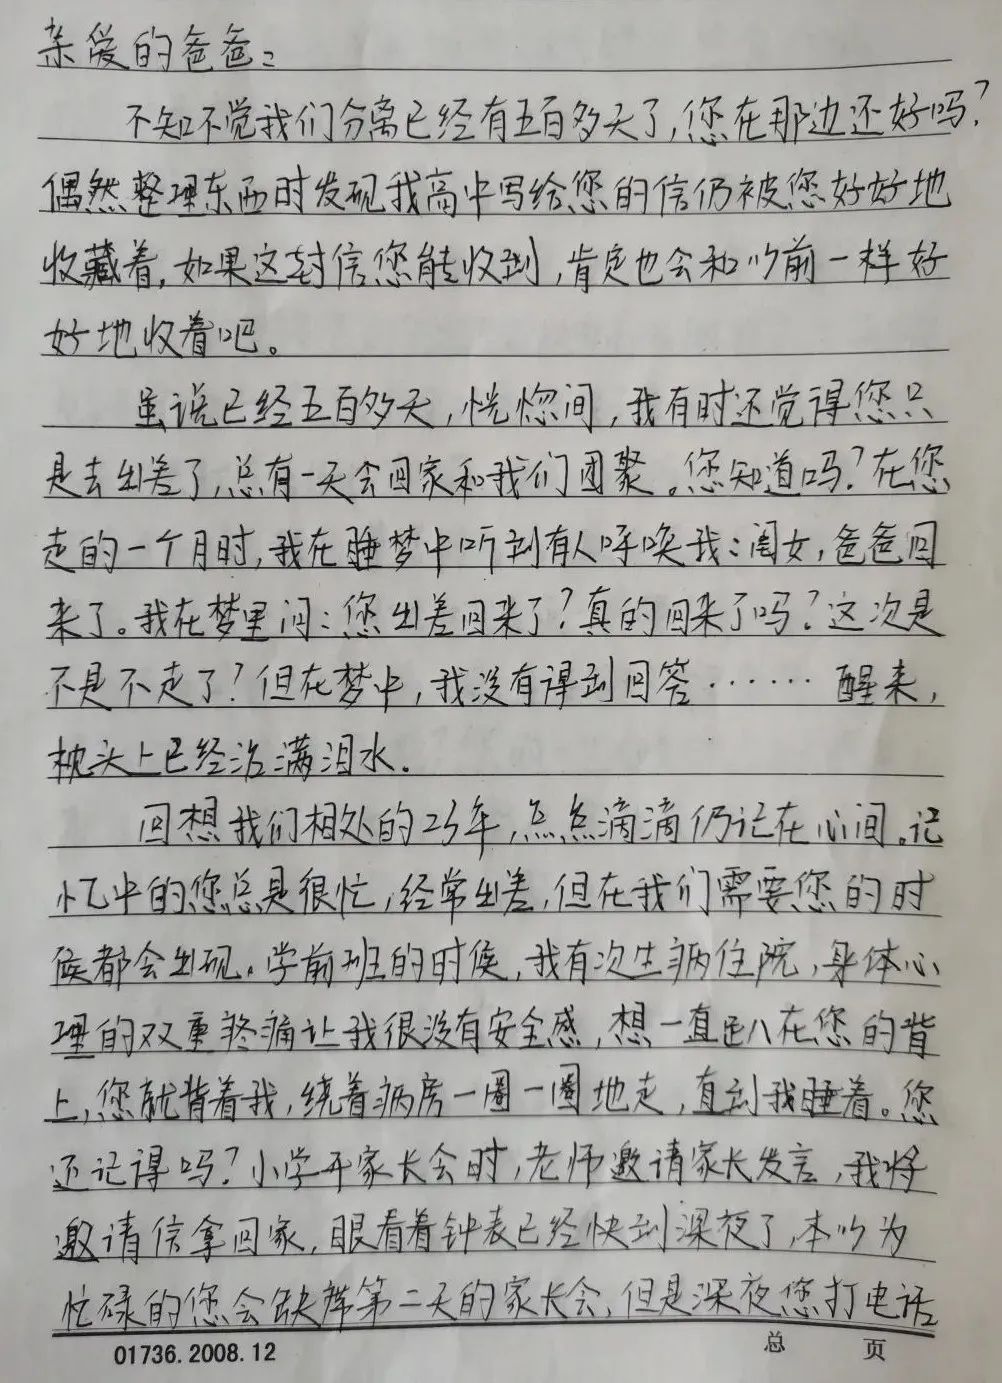 亲爱的爸爸：
不知不觉我们分离已经有五百多天了，您在那边还好吗？
偶然整理东西时发现我高中写给您的信仍被您好好地
收藏着，如果这封信您能收到，肯定也会和以前一样好
好地收着吧。
虽说已经五百多天，恍惚间，我有时还觉得您只
是去出差了，总有一天会回家和我们团聚。您知道吗？在您
走的一个月时，我在睡梦中听到有人呼唤我：闺女，爸爸回
来了。我在梦里问：您出差回来了？真的回来了吗？这次是
不是不走了？但在梦中，我没有得到回答…… 醒来，
枕头上已经沾满泪水。
回想我们相处的23年，点点滴滴仍记在心间。记
忆中的您总是很忙，经常出差，但在我们需要您的时
候都会出现。学前班的时候，我有次生病住院，身体心
理的双重疼痛让我很没有安全感，想一直趴在您的背
上，您就背着我，绕着病房一圈一圈地走，直到我睡着。您
还记得吗？小学开家长会时，老师邀请家长发言，我将
邀请信拿回家，眼看着钟表已经快到深夜了，本以为
忙碌的您会缺席第二天的家长会，但是深夜您打电话
01736.2008.12 总 页